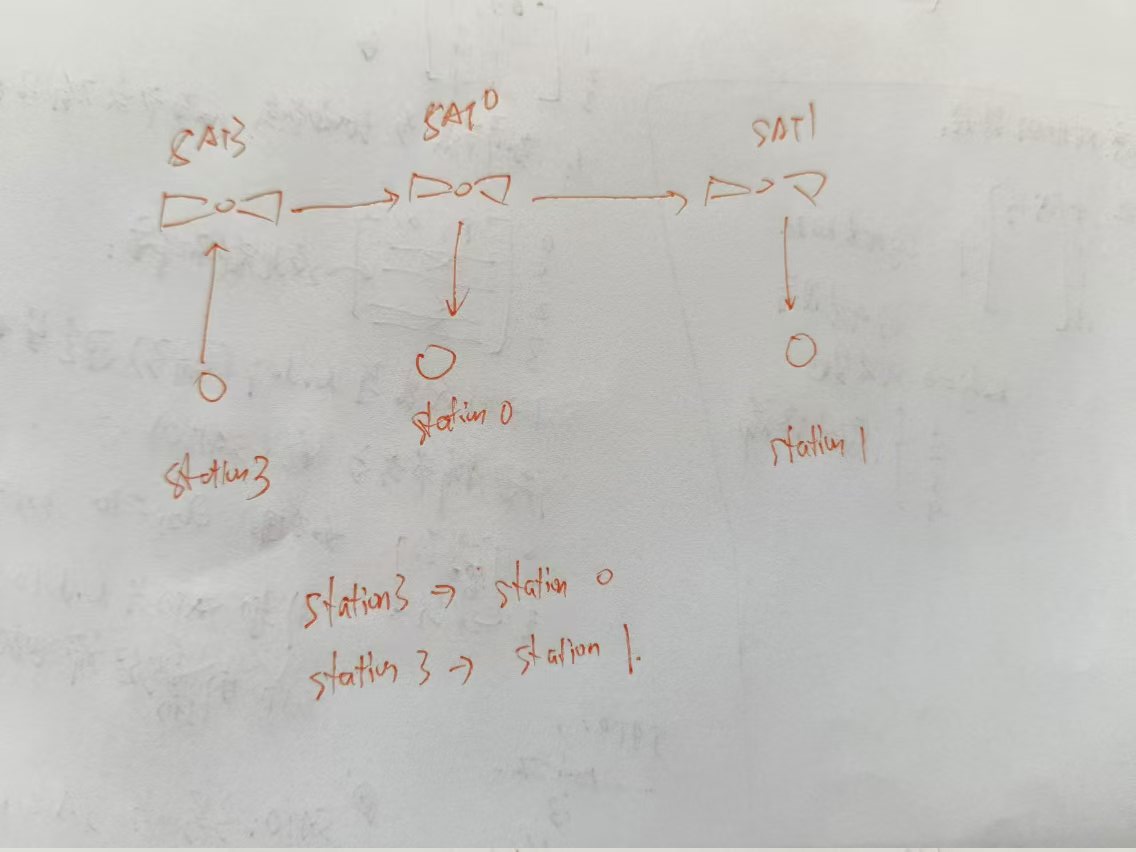 SAT3
SAT0
SAT1
station 0
station 1
station3
station3 → station 0
station 3 → station 1.